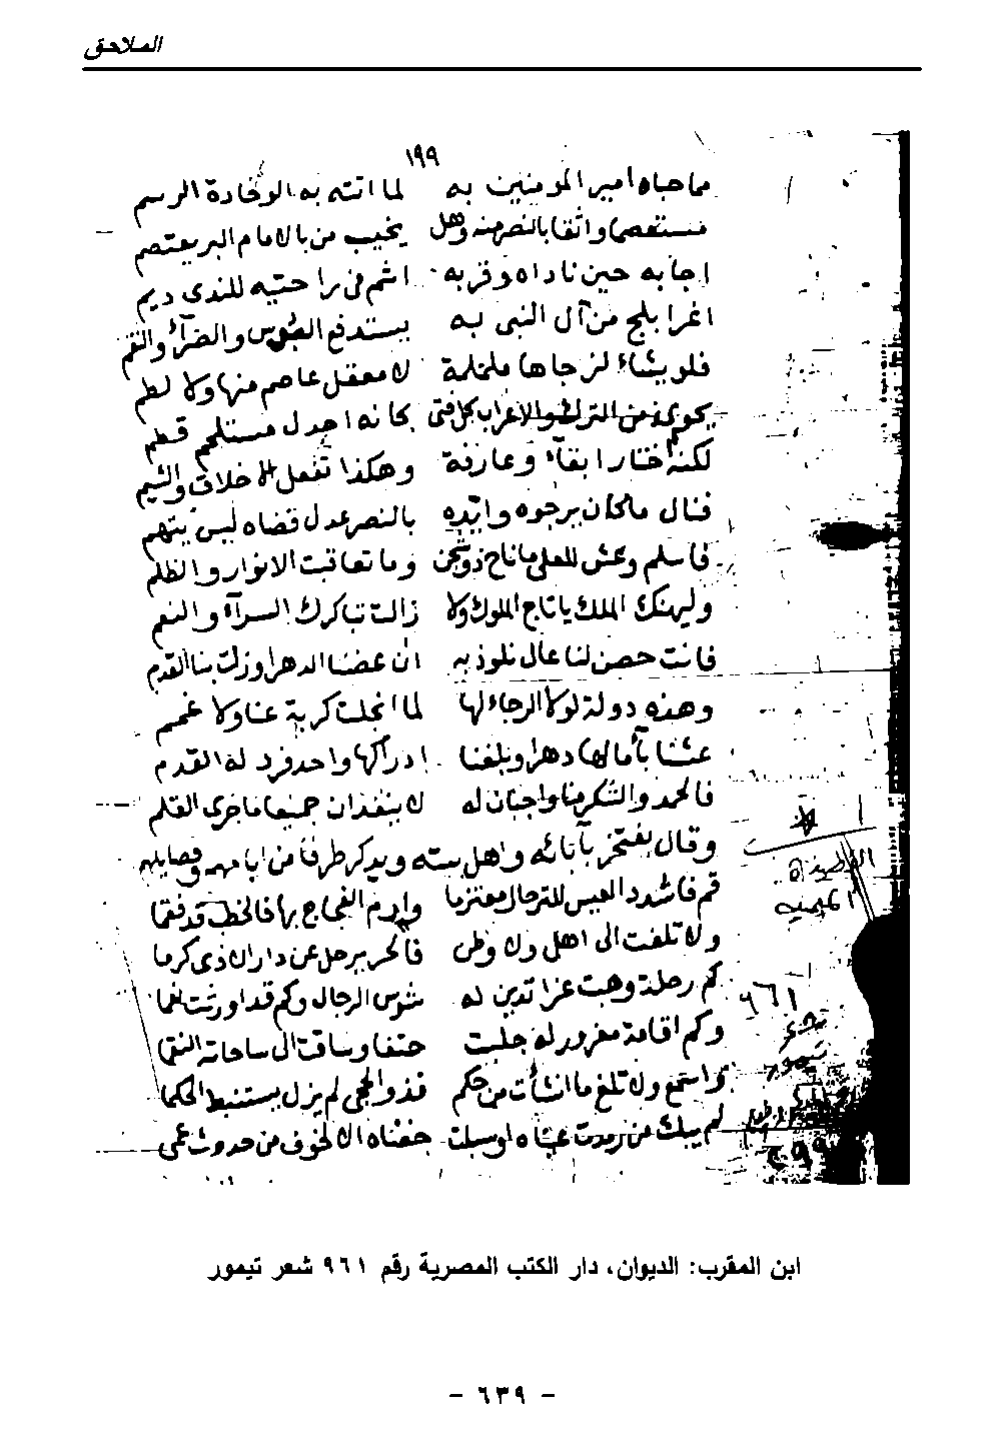 الملاحق
١٩٩
مما حباه امير المومنين به لما اتته به الوخادة الرسم
مستعصما واثقا بالنصر منه وهل يخيب من بالامام البر يعتصم
اجابه حين ناداه وقربه اشم في راحتيه للندى ديم
اغر ابلج من آل النبي به يستدفع البؤس والضرآء والنقم
فلو يشاء لزجاها ململمة لا معقل عاصم منها ولا لطم
من الترك والاعراب كل فتى كانه اجدل مستلحم قطم
لكنه اختار ابقآء وعارفة وهكذا تفعل الاخلاق والشيم
فنال ماكان يرجوه وايده بالنصر عدل قضاه ليس يتهم
فاسلم وعش للعلى ما ناح ذو شجن وما تعاقبت الانوار والظلم
وليهنك الملك ياتاج الملوك ولا زالت تباكرك السرآء والنعم
فانت حصن لنا عال نلوذ به ان عضنا الدهر او زلت بنا القدم
وهذه دولة لولا الرجاء لها لما انجلت كربة عنا ولا غمم
عشنا بآمالها دهرا وبلغنا ادراكها واحد فرد له القدم
فالحمد والشكر منا واجبان له لا ينفدان جميعا ما جرى القلم
وقال يفتخر بآبائه واهل بيته ويدكر طرفا من ايامهم وفضايلهم
قم فاشدد العيس للترحال معتزما وارم الفجاج بها فالخطب قد فقما
ولا تلفت الى اهل ولا وطن فالحر يرحل عن دار الاذى كرما
كم رحلة وهبت عزا تدين له شوس الرجال وكم قد اورثت نعما
وكم اقامة مغرور له جلبت حتفا وساقت الى ساحاته النقما
واسمع ولا تلغ ما انشأت من حكم فذو الحجى لم يزل يستنبط الحكما
لم يبك من رمدت عيناه او سبلت جفناه الا لخوف من حدوث عمى
القصيدة
الميمية
٩٦١
شعر
تيمور
ابن المقرب: الديوان، دار الكتب المصرية رقم ٩٦١ شعر تيمور
- ٦٣٩ -